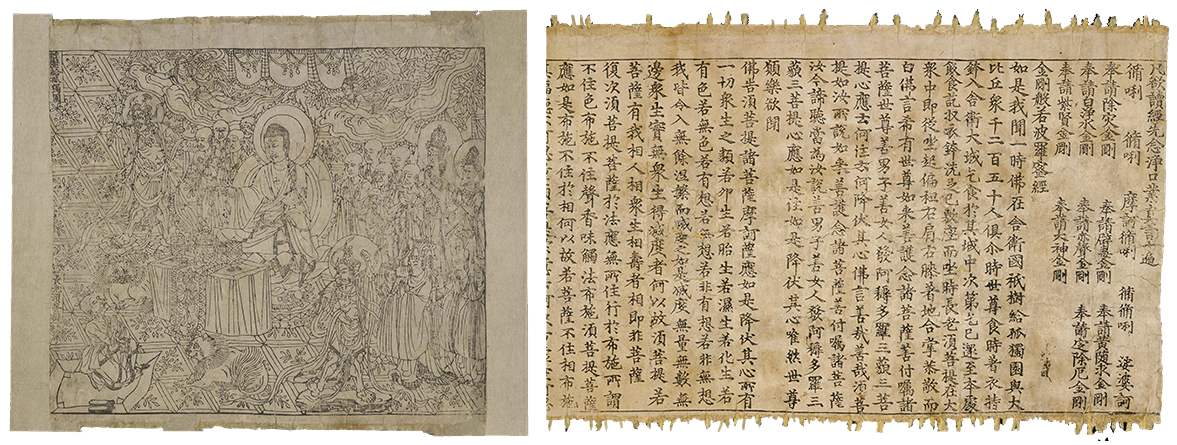 凡欲讀經先念淨口業真言一遍
脩唎 脩唎 摩訶脩唎 脩脩唎 娑婆訶
奉請除灾金剛 奉請辟毒金剛 奉請黃隨求金剛
奉請白淨水金剛 奉請赤聲金剛 奉請定除厄金剛
奉請紫賢金剛 奉請大神金剛
金剛般若波羅蜜經
如是我聞一時佛在舍衛國祇樹給孤獨園與大
比丘衆千二百五十人俱尒時世尊食時著衣持
鉢入舍衛大城乞食於其城中次第乞已還至本處
飯食訖收衣鉢洗足已敷座而坐時長老須菩提在大
衆中即從座起偏袒右肩右膝著地合掌恭敬而
白佛言希有世尊如来善護念諸菩薩善付囑諸
菩薩世尊善男子善女人發阿耨多羅三藐三菩
提心應云何住云何降伏其心佛言善哉善哉須菩
提如汝所說如来善護念諸菩薩善付囑諸菩薩
汝今諦聽當為汝說善男子善女人發阿耨多羅三
藐三菩提心應如是住如是降伏其心唯然世尊
願樂欲聞
佛告須菩提諸菩薩摩訶薩應如是降伏其心所有
一切衆生之類若卵生若胎生若濕生若化生若
有色若無色若有想若無想若非有想若非無想
我皆令入無餘涅槃而滅度之如是滅度無量無數無
邊衆生實無衆生得滅度者何以故須菩提若
菩薩有我相人相衆生相壽者相即非菩薩
復次須菩提菩薩於法應無所住行於布施所謂
不住色布施不住聲香味觸法布施須菩提菩薩
應如是布施不住於相何以故若菩薩不住相布施